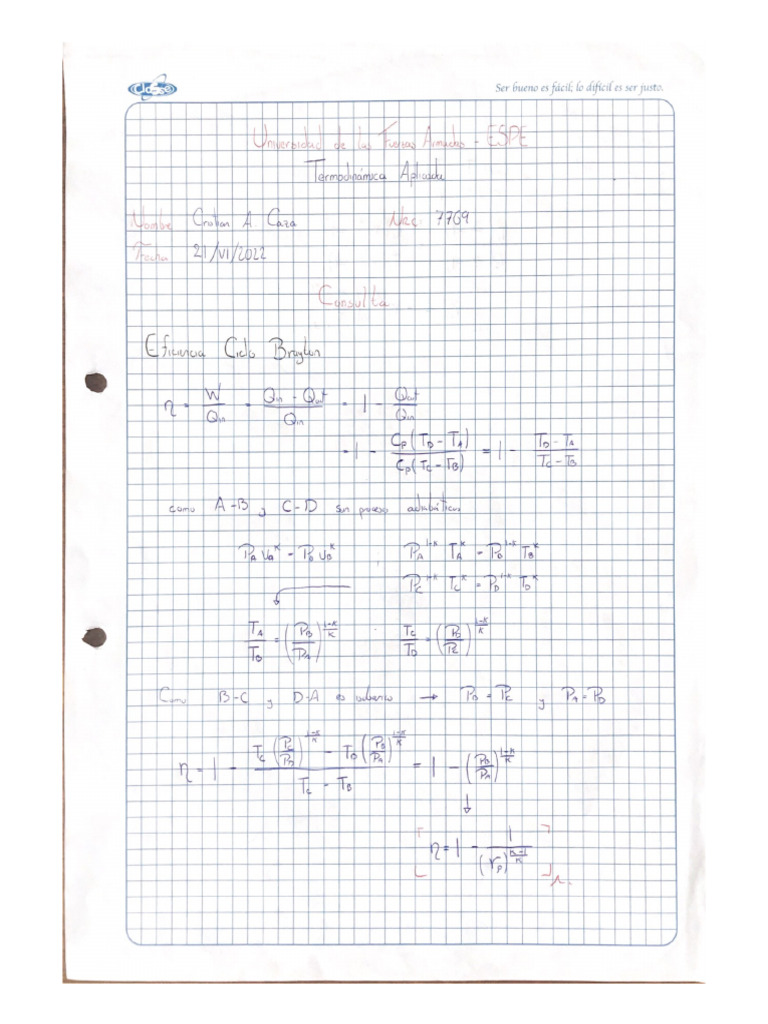 Class
Ser bueno es fácil; lo difícil es ser justo.
Universidad de las Fuerzas Armadas - ESPE
Termodinámica Aplicada
Nombre Cristian A. Caza Nrc: 7769
Fecha 21/VI/2022
Consulta
Eficiencia Ciclo Brayton
η = W/Qin = (Qin - Qout)/Qin = 1 - Qout/Qin
= 1 - Cp(TD - TA)/Cp(TC - TB) = 1 - (TD - TA)/(TC - TB)
como A-B y C-D son procesos adiabáticos
PA VA^K = PB VB^K , PA^(1-K) TA^K = PB^(1-K) TB^K
PC^(1-K) TC^K = PD^(1-K) TD^K
TA/TB = (PB/PA)^((1-K)/K) TC/TD = (PD/PC)^((1-K)/K)
Como B-C y D-A es isobarico → PB = PC y PA = PD
η = 1 - (TC (PC/PD)^((1-K)/K) - TB (PB/PA)^((1-K)/K))/(TC - TB) = 1 - (PB/PA)^((1-K)/K)
↓
η = 1 - 1/(rp)^((K-1)/K)